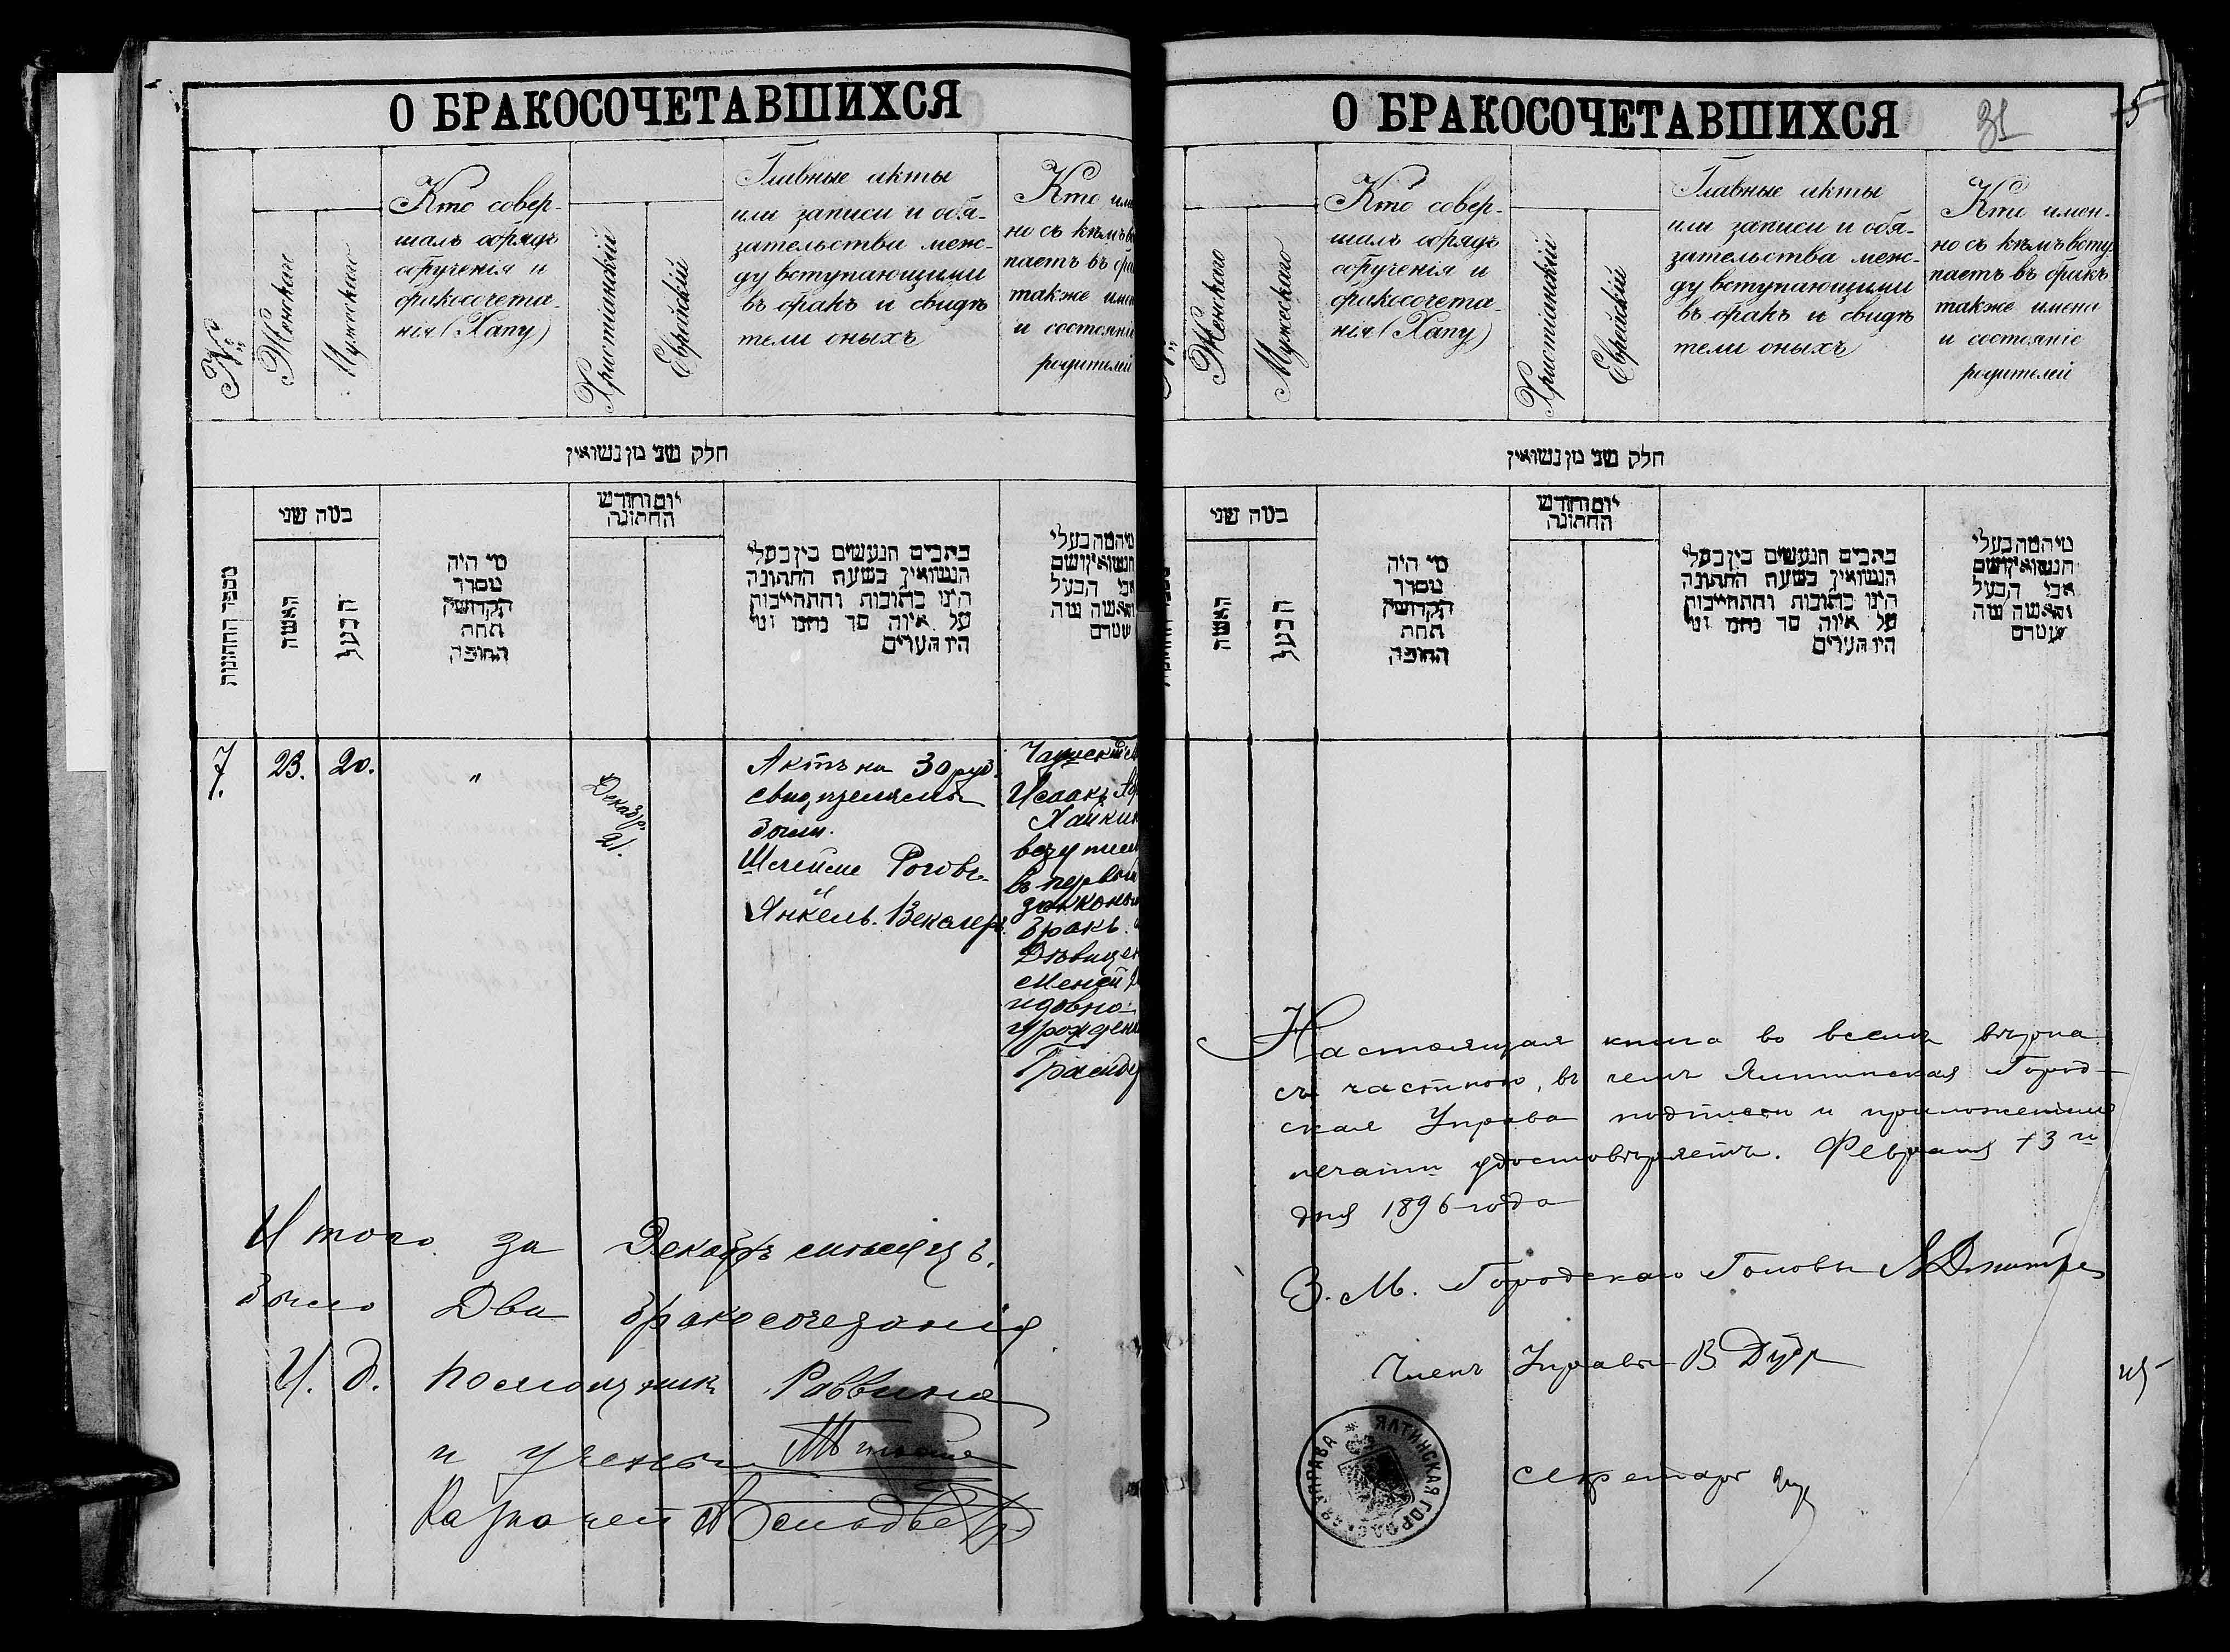 О БРАКОСОЧЕТАВШИХСЯ
№
Женскаго
Мужескаго
Кто совер-
шалъ обрядъ
обрученія и
бракосочета-
нія (Хапу)
Христіанскій
Еврейскій
Главные акты
или записи и обя-
зательства меж-
ду вступающими
въ бракъ и свидѣ
тели оныхъ
Кто име
но съ кѣмъ вс
паетъ въ бра
также име
и состояни
родителей
חלק שני מן נשואין
מספר החתונות
בטה שני
האשה
הבעל
מי היה
מסדר
הקדושין
תחת
החופה
יום וחודש
החתונה
כתבים הנעשים בין בעלי
הנשואין בשעת החתונה
היינו כתובות והתחייבות
על איזה סך כחמו זמי
היו העדים
מיהמה בעלי
הנשואין ושם
אבי הבעל
והאשה שה
שטרם
7.
23.
20.
"
Декабр.
21.
Актъ на 30 руб.
были.
Шлейме Роговъ
и
Янкель Векслеръ.
Исаакъ
Хайкин
вступил
въ первый
законный
бракъ. и
Дѣвицей
урожден
Итого за Декабрь мѣсяцъ.
было Два бракосочетанія
И. д. помощникъ Раввина
и ученый
Казначей
О БРАКОСОЧЕТАВШИХСЯ
31
5
Женскаго
Мужескаго
Кто совер-
шалъ обрядъ
обрученія и
бракосочета-
нія (Хапу)
Христіанскій
Еврейскій
Главные акты
или записи и обя-
зательства меж-
ду вступающими
въ бракъ и свидѣ
тели оныхъ
Кто имен-
но съ кѣмъ всту
паетъ въ бракъ
также имена
и состояніе
родителей
חלק שני מן נשואין
בטה שני
האשה
הבעל
מי היה
מסדר
הקדושין
תחת
החופה
יום וחודש
החתונה
כתבים הנעשים בין בעלי
הנשואין בשעת החתונה
היינו כתובות והתחייבות
על איזה סך כחמו זמי
היו העדים
מיהמה בעלי
הנשואין ושם
אבי הבעל
והאשה שה
שטרם
Настоящая книга во всемъ вѣрна
съ частною, въ чемъ Ялтинская Город-
ская Управа подписью и приложеніемъ
печати удостовѣряетъ. Февраля 13 го
дня 1896 года
З. М. Городскаго Головы
Членъ Управы В
Секретарь
ЯЛТИНСКАЯ ГОРОДСКАЯ УПРАВА